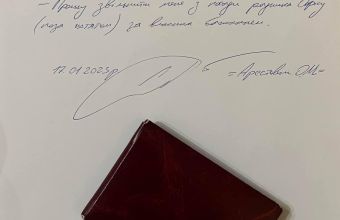 – Прошу звільнити мене з посади радника Офісу
(поза штатом) за власним бажанням.
17.01.2023р =Арестович О.М=